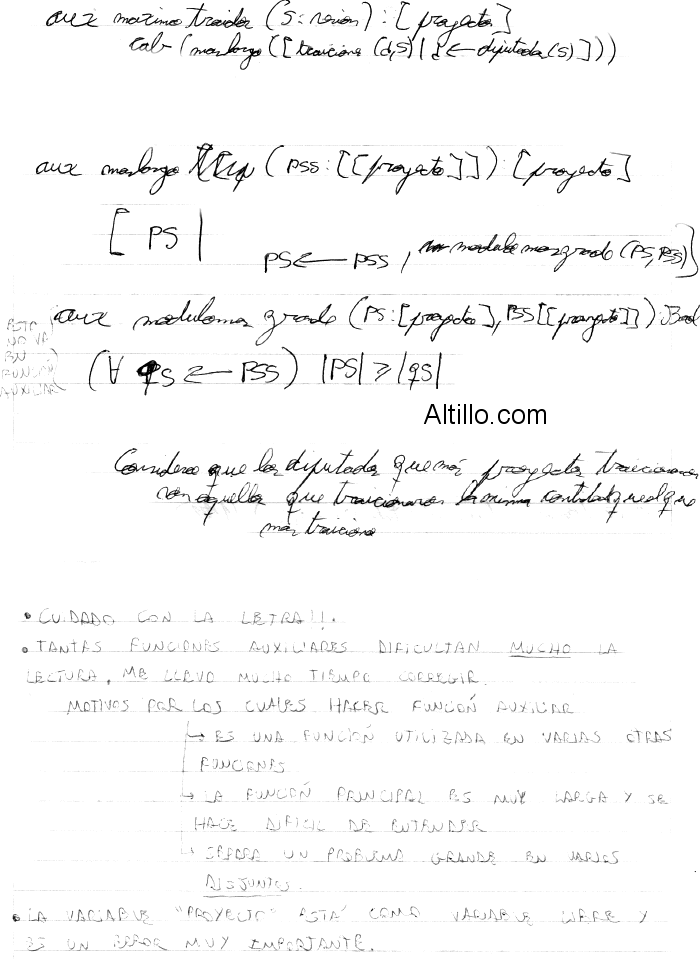 aux maximo traidor (s: sesion) : [proyecto]
cab (maslargo ([traiciona (d,s) | d ← diputados (s)]))
aux maslargo (pss: [[proyecto]]) : [proyecto]
[ PS |
PS ← PSS , (PS, PSS)]
aux grande (PS: [proyecto], PSS [[proyecto]]) : Bool
ESTO
NO VA
EN
FUNCIÓN
AUXILIAR
(∀ qs ← PSS) |PS| ≥ |qs|
Altillo.com
Considero que los diputados que más proyectos traicionaron
son aquellos que traicionaron la misma cantidad que el que
mas traiciono
• CUIDADO CON LA LETRA!!.
• TANTAS FUNCIONES AUXILIARES DIFICULTAN MUCHO LA
LECTURA, ME LLEVO MUCHO TIEMPO CORREGIR.
MOTIVOS POR LOS CUALES HACER FUNCIÓN AUXILIAR
↳ ES UNA FUNCIÓN UTILIZADA EN VARIAS OTRAS
FUNCIONES
↳ LA FUNCIÓN PRINCIPAL ES MUY LARGA Y SE
HACE DIFICIL DE ENTENDER
↳ SEPARA UN PROBLEMA GRANDE EN VARIOS
DISJUNTOS.
• LA VARIABLE "PROYECTO" ESTÁ COMO VARIABLE LIBRE Y
ES UN ERROR MUY IMPORTANTE.